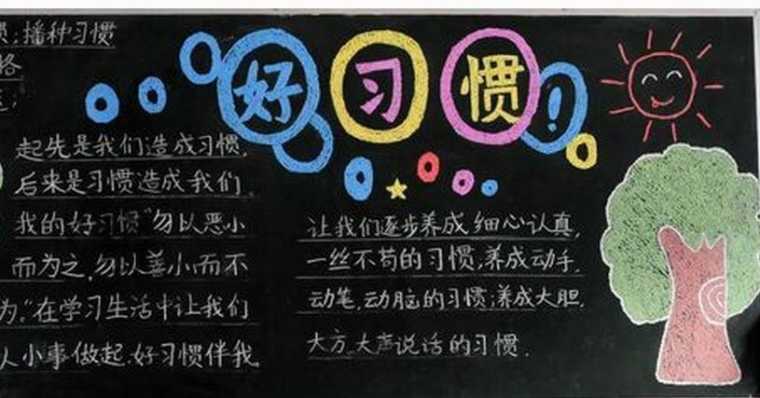 好习惯!
播种习惯
起先是我们造成习惯,
后来是习惯造成我们。
我的好习惯"勿以恶小
而为之,勿以善小而不
为。"在学习生活中让我们
人小事做起.好习惯伴我
让我们逐步养成细心认真,
一丝不苟的习惯,养成动手,
动笔,动脑的习惯;养成大胆,
大方,大声说话的习惯.